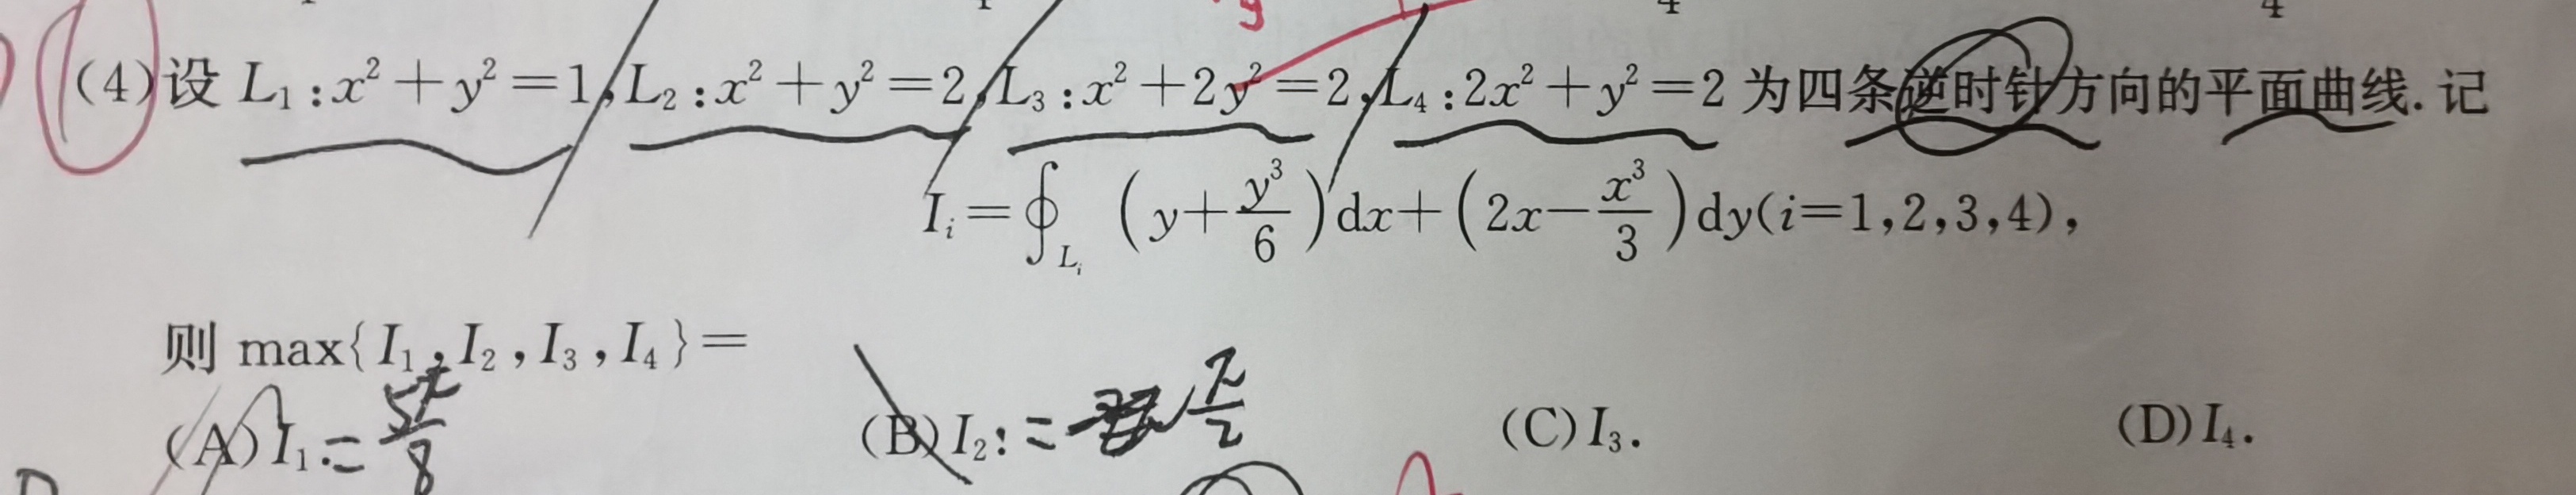 (4)设 L₁:x²+y²=1,L₂:x²+y²=2,L₃:x²+2y²=2,L₄:2x²+y²=2 为四条逆时针方向的平面曲线.记
Iᵢ=∮_{Lᵢ} (y+y³/6)dx+(2x−x³/3)dy(i=1,2,3,4),
则 max{I₁,I₂,I₃,I₄}=
(A)I₁.=5π/8 (B)I₂.=π/2 (C)I₃. (D)I₄.